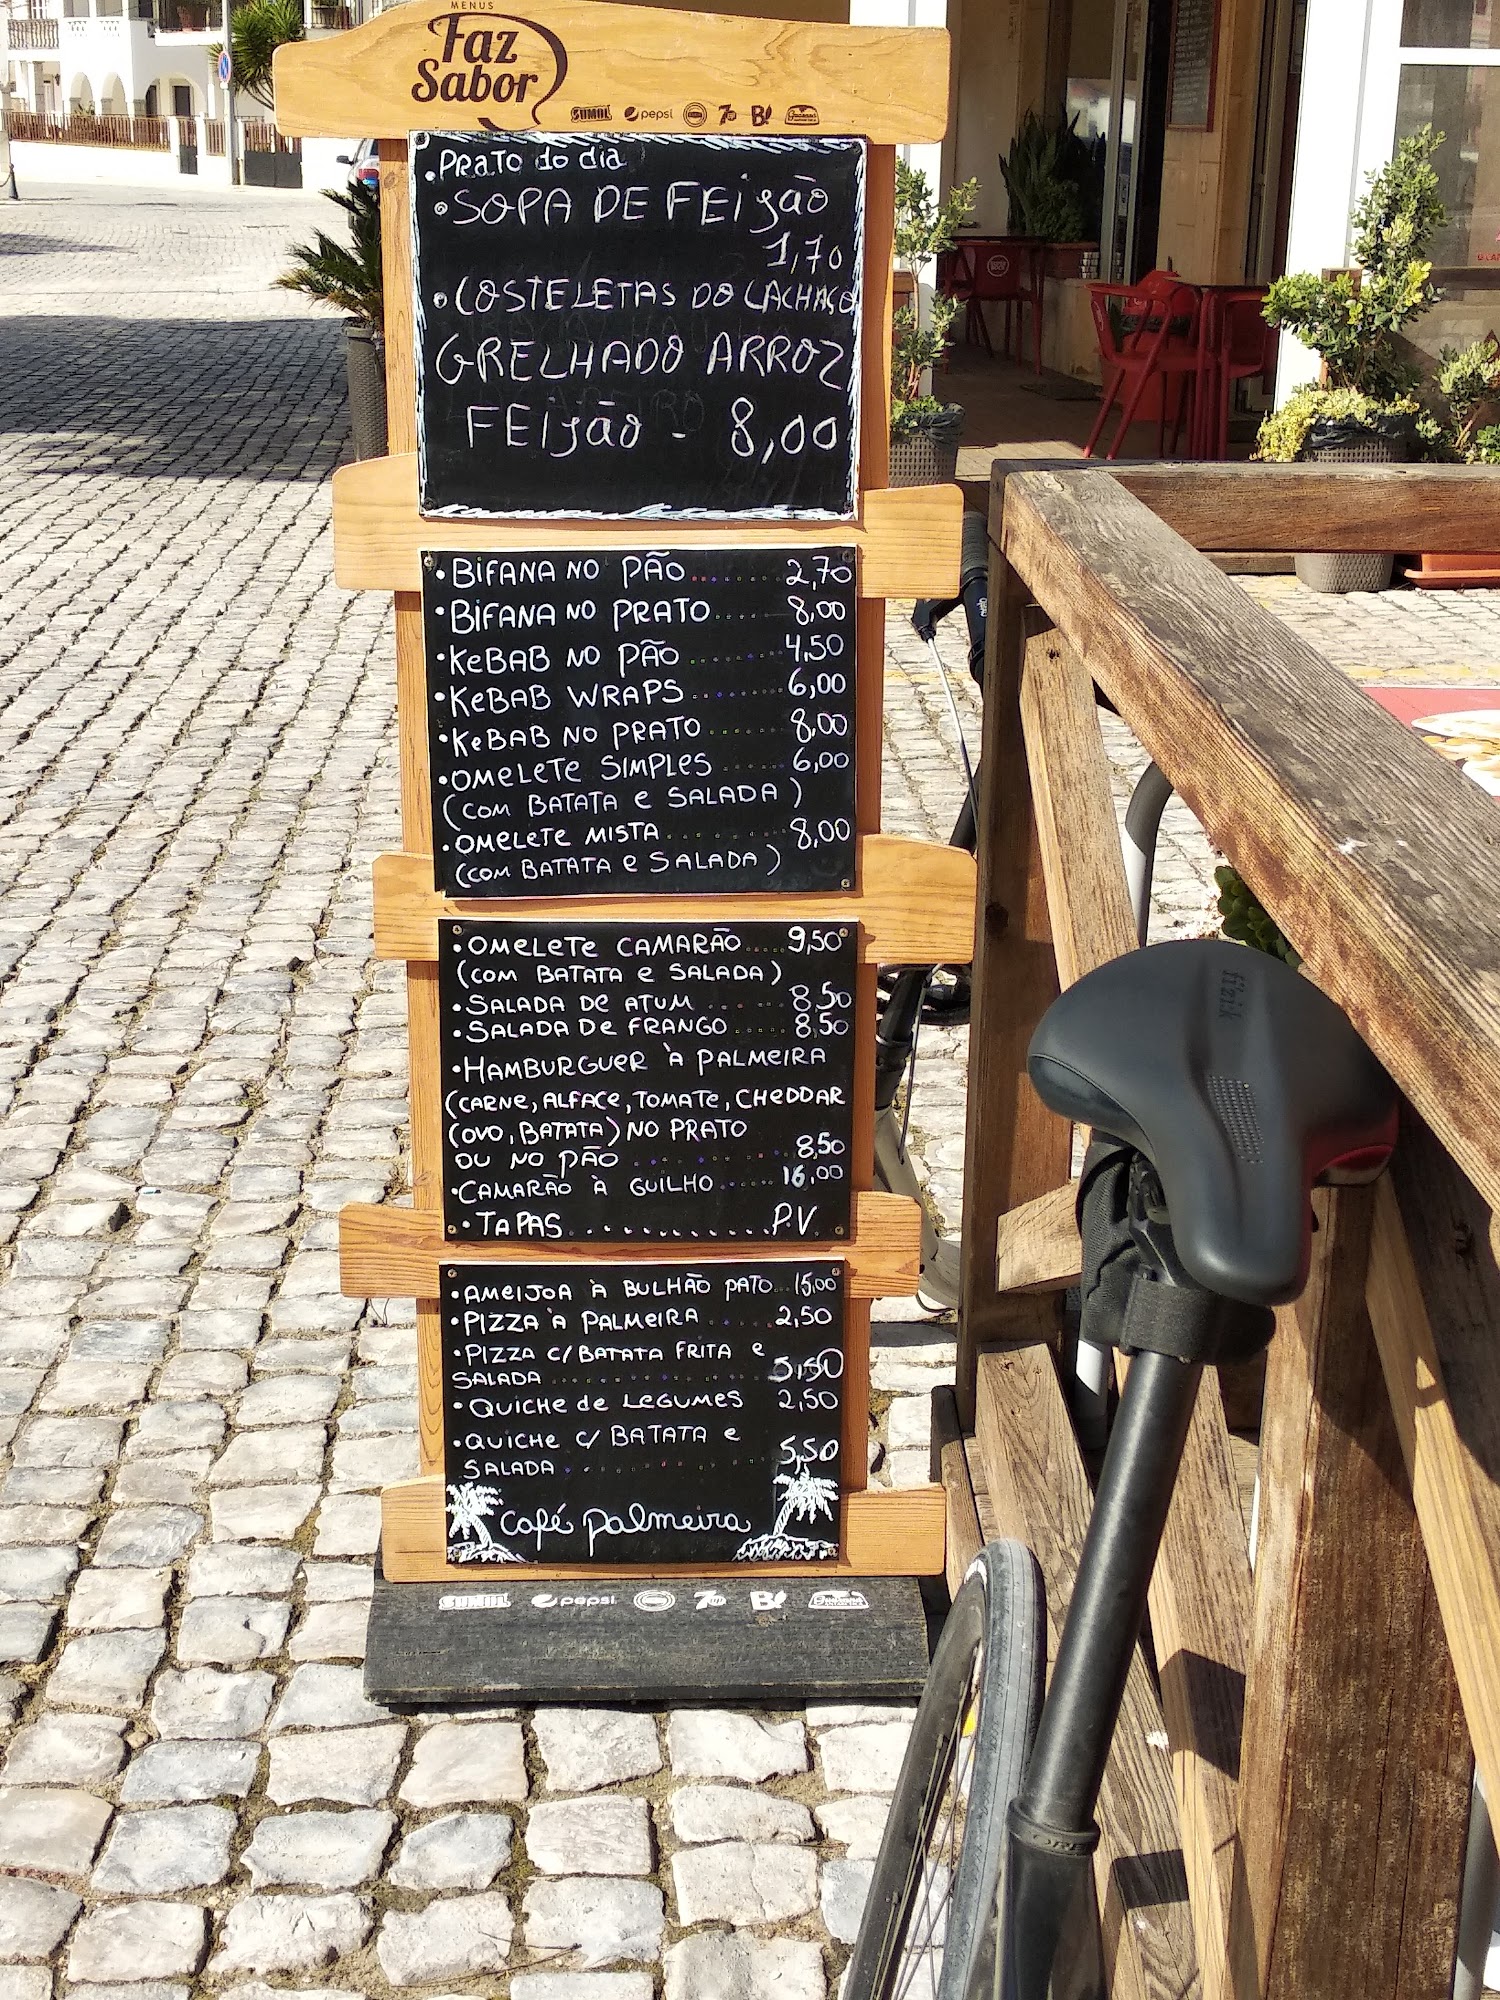 MENUS
Faz
Sabor
SUMOL pepsi 7up B! Guaraná
• Prato do dia
• SOPA DE FEijão
1,70
• COSTELETAS DO CACHAÇO
GRELHADO ARROZ
FEijão - 8,00
• BIFANA NO PÃO........2,70
• BIFANA NO PRATO......8,00
• KeBAB NO PÃO........4,50
• KeBAB WRAPS........6,00
• KeBAB NO PRATO......8,00
• OMELETE SIMPLES......6,00
(COM BATATA e SALADA)
• OMELETE MISTA........8,00
(COM BATATA e SALADA)
• OMELETE CAMARÃO.....9,50
(COM BATATA e SALADA)
• SALADA DE ATUM......8,50
• SALADA De FRANGO.....8,50
• HAMBURGUER À PALMEIRA
(CARNE, ALFACE, TOMATE, CHEDDAR
(OVO, BATATA) NO PRATO
OU NO PÃO........8,50
• CAMARÃO À GUILHO......16,00
• TAPAS............P.V.
• AMEIJOA À BULHÃO PATO...15,00
• PIZZA À PALMEIRA......2,50
• PIZZA C/BATATA FRITA e
SALADA............5,50
• QUICHe de LeGUMeS 2,50
• QUICHE C/ BATATA e
SALADA............5,50
café palmeira
SUMOL pepsi 7up B! Guaraná
fi'zi:k